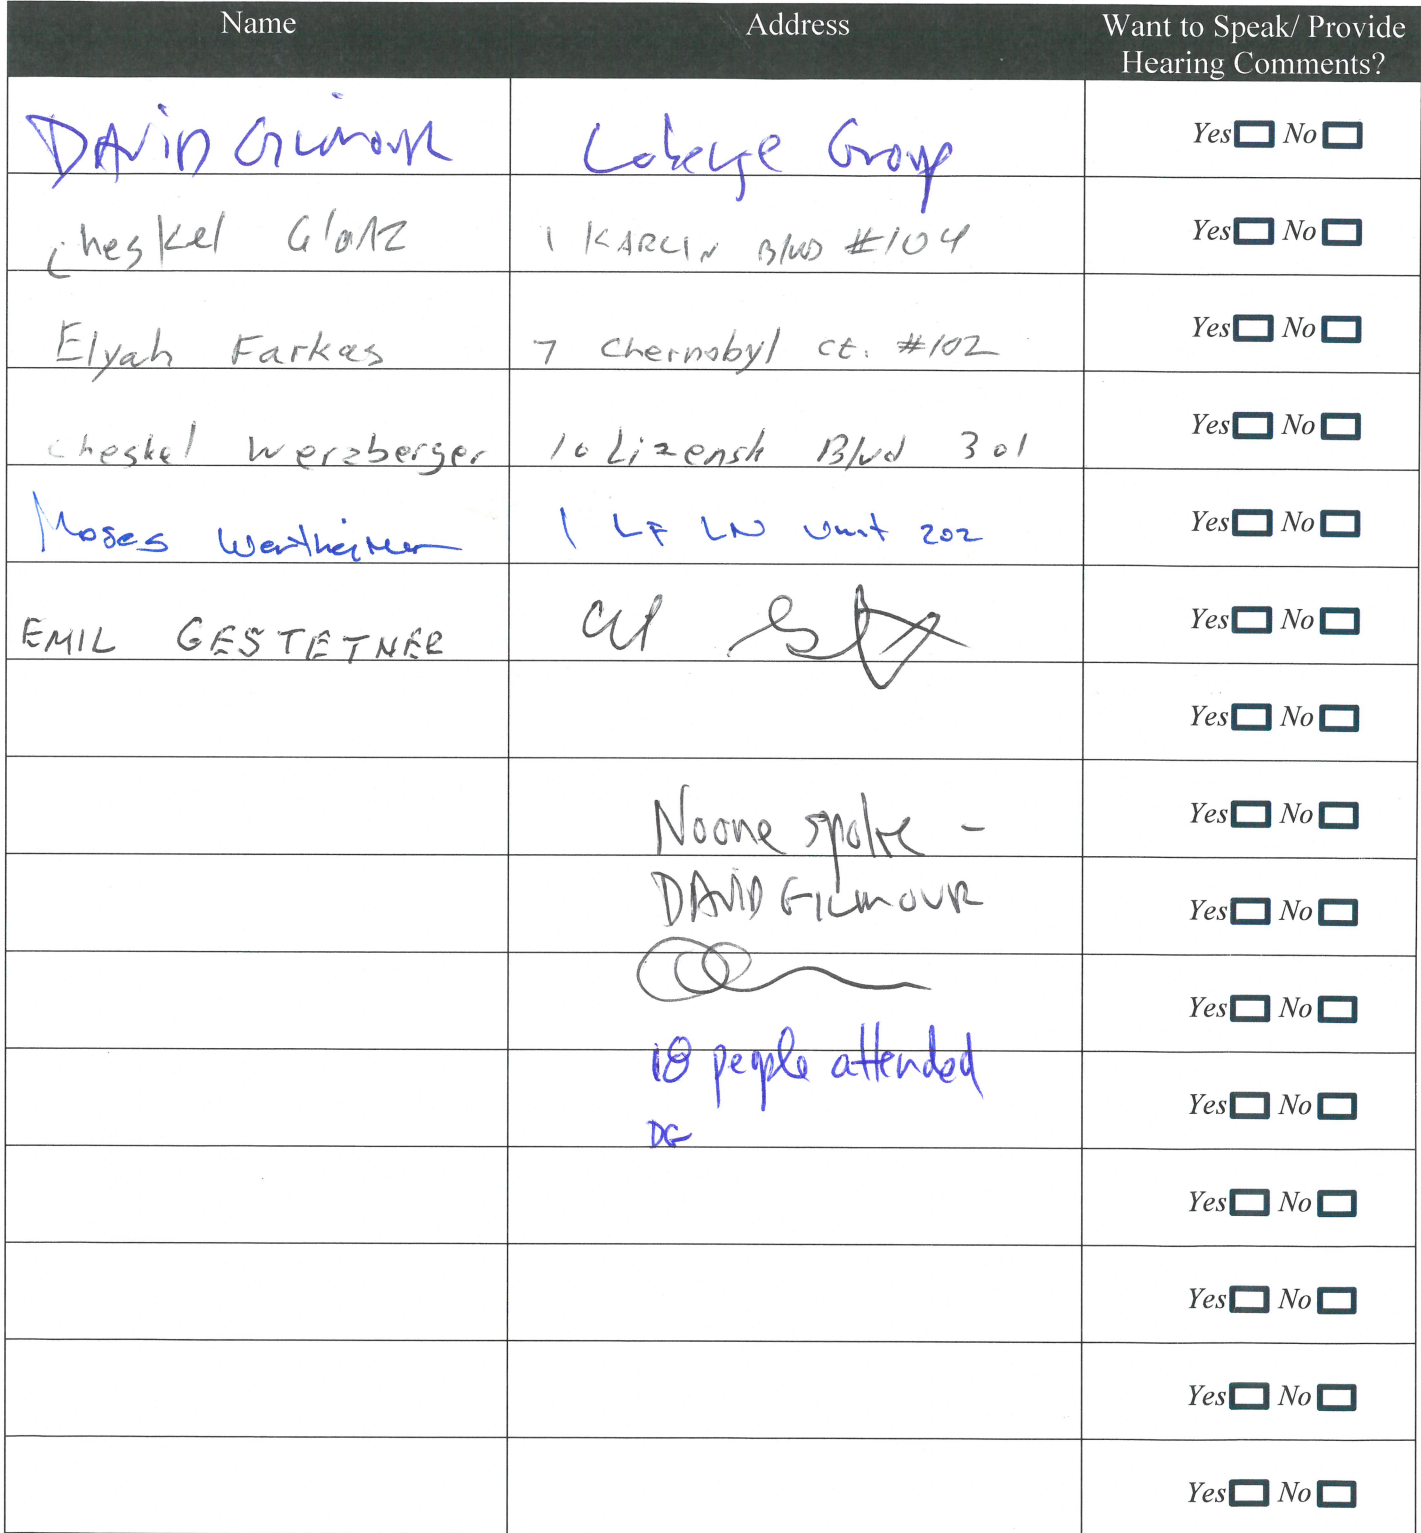 Name Address Want to Speak/ Provide
Hearing Comments?
DAViD GILMOUR Laberge Group Yes No
Cheskel Glanz 1 KARLIN Blvd #104 Yes No
Elyah Farkas 7 Chernobyl ct. #102 Yes No
Cheskel Werzberger 10 Lizensk Blvd 301 Yes No
Moses Wertheimer 1 LF LN Unit 202 Yes No
EMIL GESTETNER Yes No
Yes No
Noone spoke - Yes No
DAVID GILMOUR Yes No
Yes No
18 people attended Yes No
DG
Yes No
Yes No
Yes No
Yes No